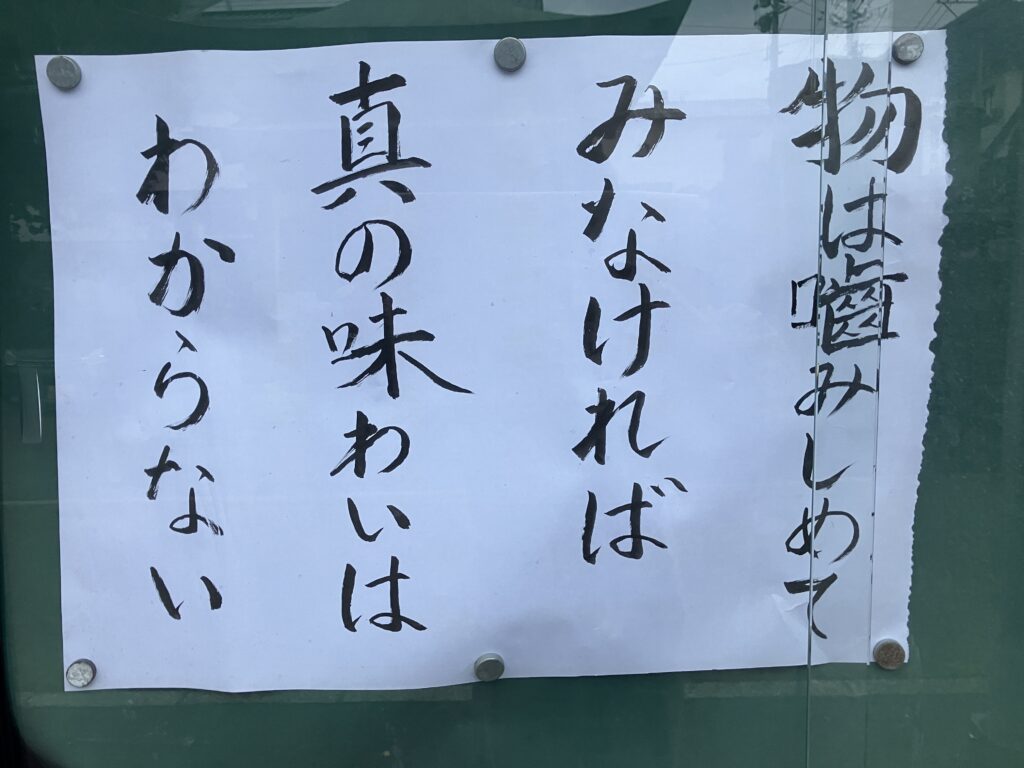 物は嚙みしめて
みなければ
真の味わいは
わからない